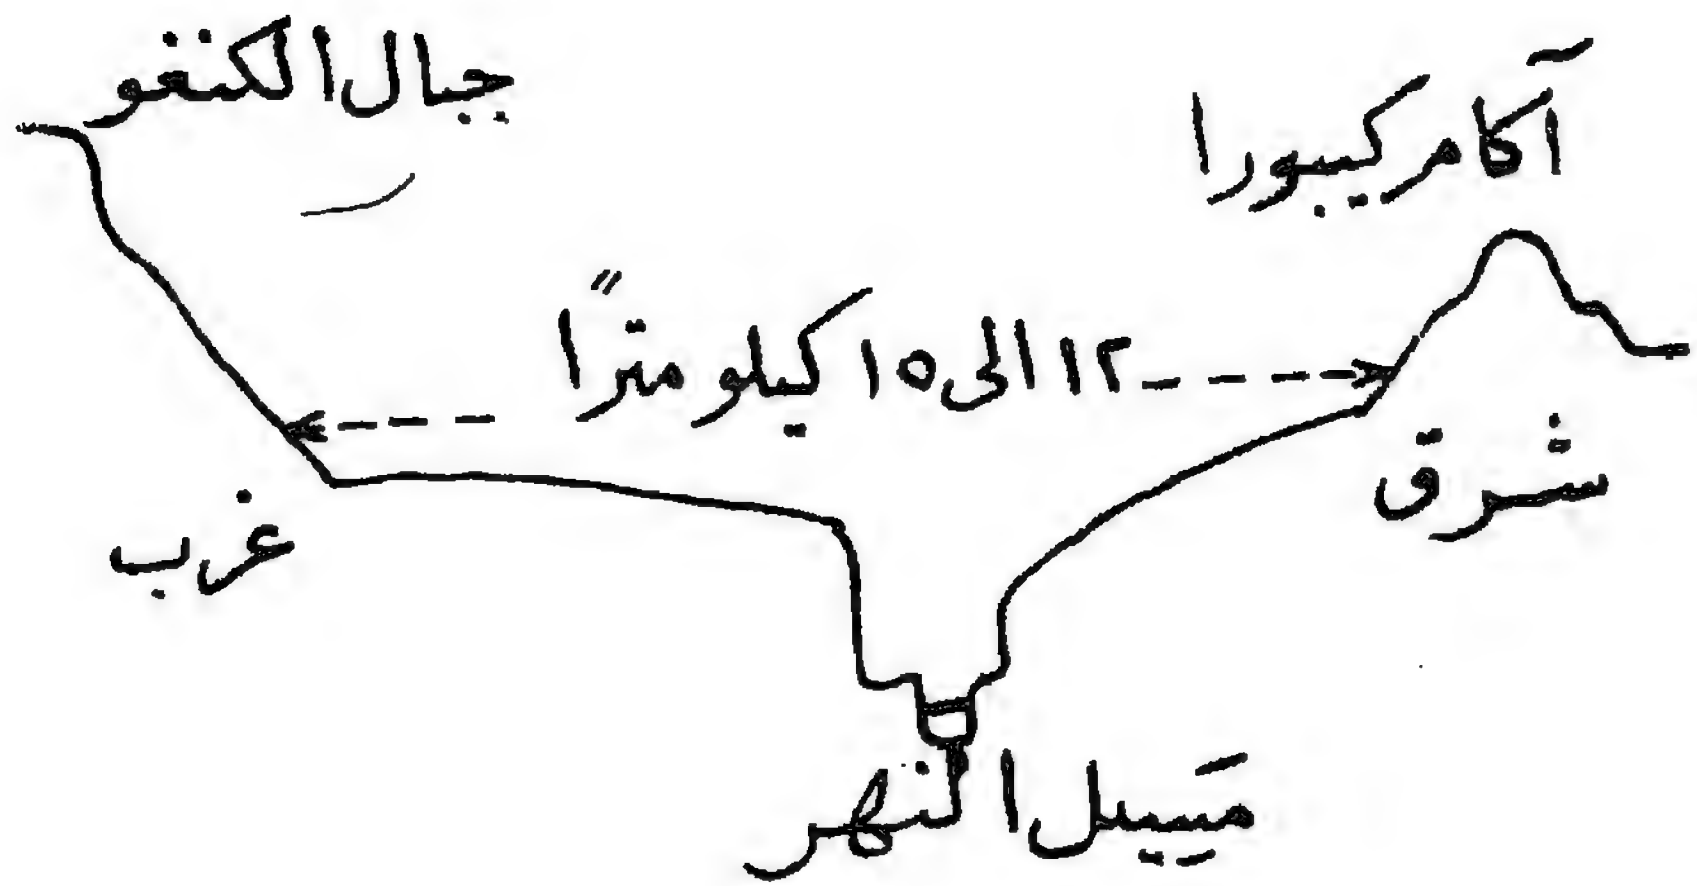 جبال الكنغو
آكام كيبورا
١٢ الى ١٥ كيلو مترًا
شرق
غرب
مَسيل النهر